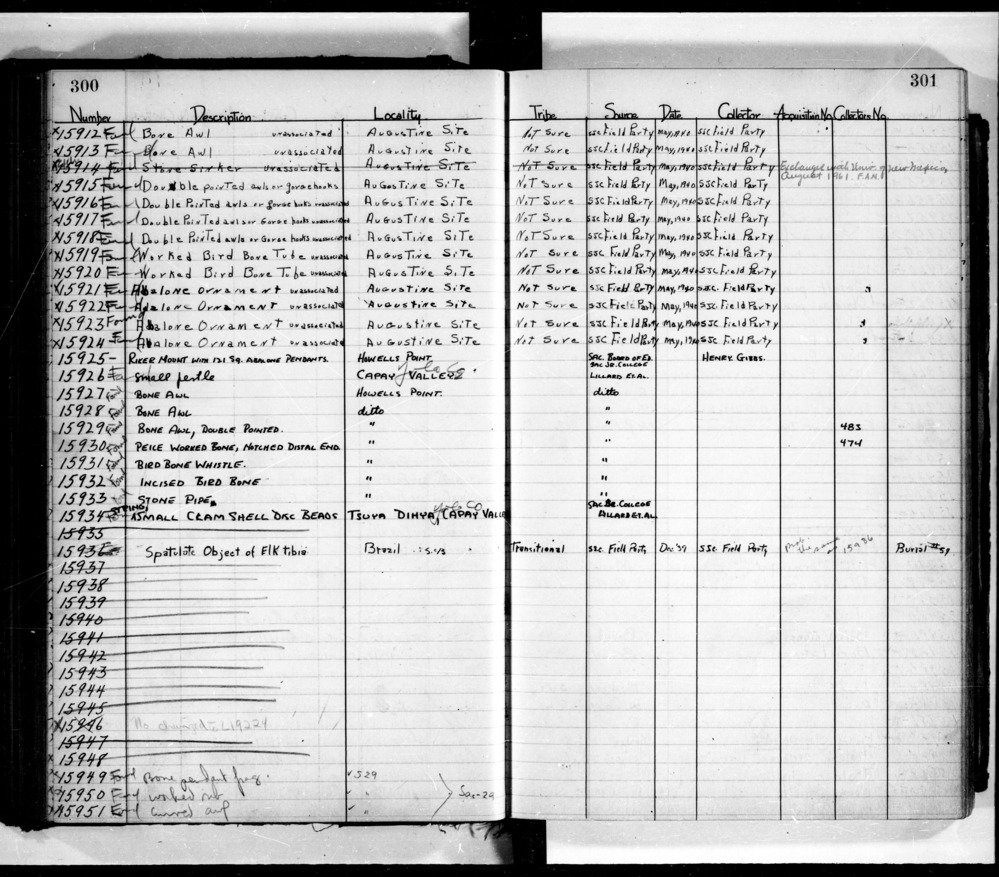 300
301
Number Description Locality Tribe Source Date Collector Acquisition No. Collectors No.
x15912 Found Bone Awl unassociated Augustine Site Not Sure SSC Field Party May, 1940 SSC Field Party
x15913 Found Bone Awl unassociated Augustine Site Not Sure SSC Field Party May, 1940 SSC Field Party
x15914 Found Stone Sinker unassociated Augustine Site Not Sure SSC Field Party May, 1940 SSC Field Party Exchanged with Univ. of New Mexico,
August 1961.
x15915 Found Double pointed awls or gorge hooks Augustine Site Not Sure SSC Field Party May, 1940 SSC Field Party
x15916 Found Double Pointed awls or gorge hooks unassociated Augustine Site Not Sure SSC Field Party May, 1940 SSC Field Party
x15917 Found Double Pointed awls or Gorge hooks unassociated Augustine Site Not Sure SSC Field Party May, 1940 SSC Field Party
x15918 Found Double Pointed awls or Gorge hooks unassociated Augustine Site Not Sure SSC Field Party May, 1940 SSC Field Party
x15919 Found Worked Bird Bone Tube unassociated Augustine Site Not Sure SSC Field Party May, 1940 SSC Field Party
x15920 Worked Bird Bone Tube unassociated Augustine Site Not Sure SSC Field Party May, 1940 SSC Field Party
x15921 Abalone Ornament unassociated Augustine Site Not Sure SSC Field Party May, 1940 SSC Field Party
x15922 Abalone Ornament unassociated Augustine Site Not Sure SSC Field Party May, 1940 SSC Field Party
x15923 Found Abalone Ornament unassociated Augustine Site Not Sure SSC Field Party May, 1940 SSC Field Party
x15924 Abalone Ornament unassociated Augustine Site Not Sure SSC Field Party May, 1940 SSC Field Party
15925- Riker Mount with 121 sq. abalone pendants. Howells Point Sac. Board of Ed. Henry Gibbs.
Sac Jr. College
15926 small pestle Capay Valley Yolo Co. Lillard et al.
15927 Found Bone Awl Howells Point. ditto
15928 Found Bone Awl ditto "
15929 Found Bone Awl, Double Pointed. " " 483
15930 Found Peice Worked Bone, Notched Distal End. " " 474
15931 Found Bird Bone Whistle. " "
15932 Found Incised Bird Bone " "
15933 Found Stone Pipe. " "
15934 String Small Clam Shell Disc Beads Tsuya Dihya, Capay Valley Yolo Co Sac. Jr. College
Allard et al.
15935
15936 Spatulate Object of Elk tibia Brazil Transitional SSC Field Party Dec '37 SSC Field Party 15986 Burial #59
15937
15938
15939
15940
15941
15942
15943
15944
15945
x15946
15947
15948
x15949 Found Bone pendant frag. ✓ 529
x15950 worked ✓ " Sac-29
x15951 curved awl ✓ "